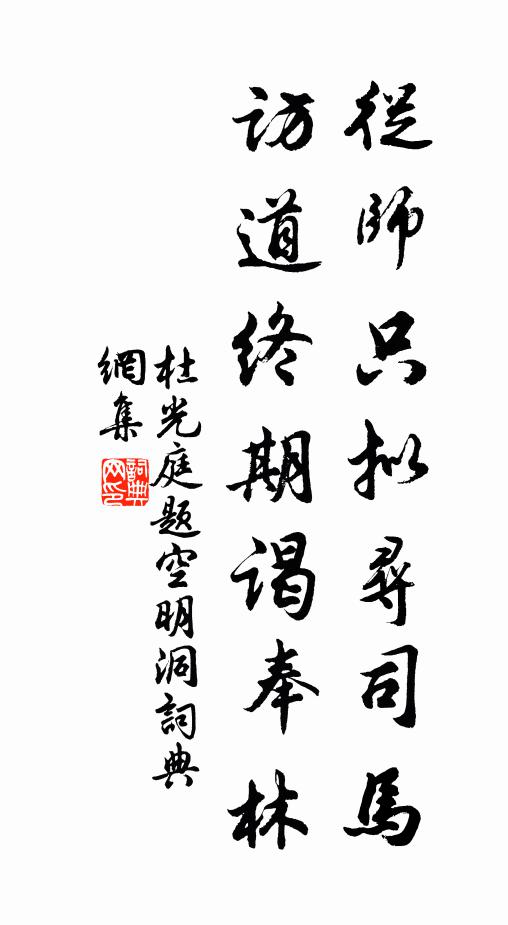 從師只拟尋司馬
訪道終期謁奉林
杜光庭題空明洞詞典
網集
詞典
网印